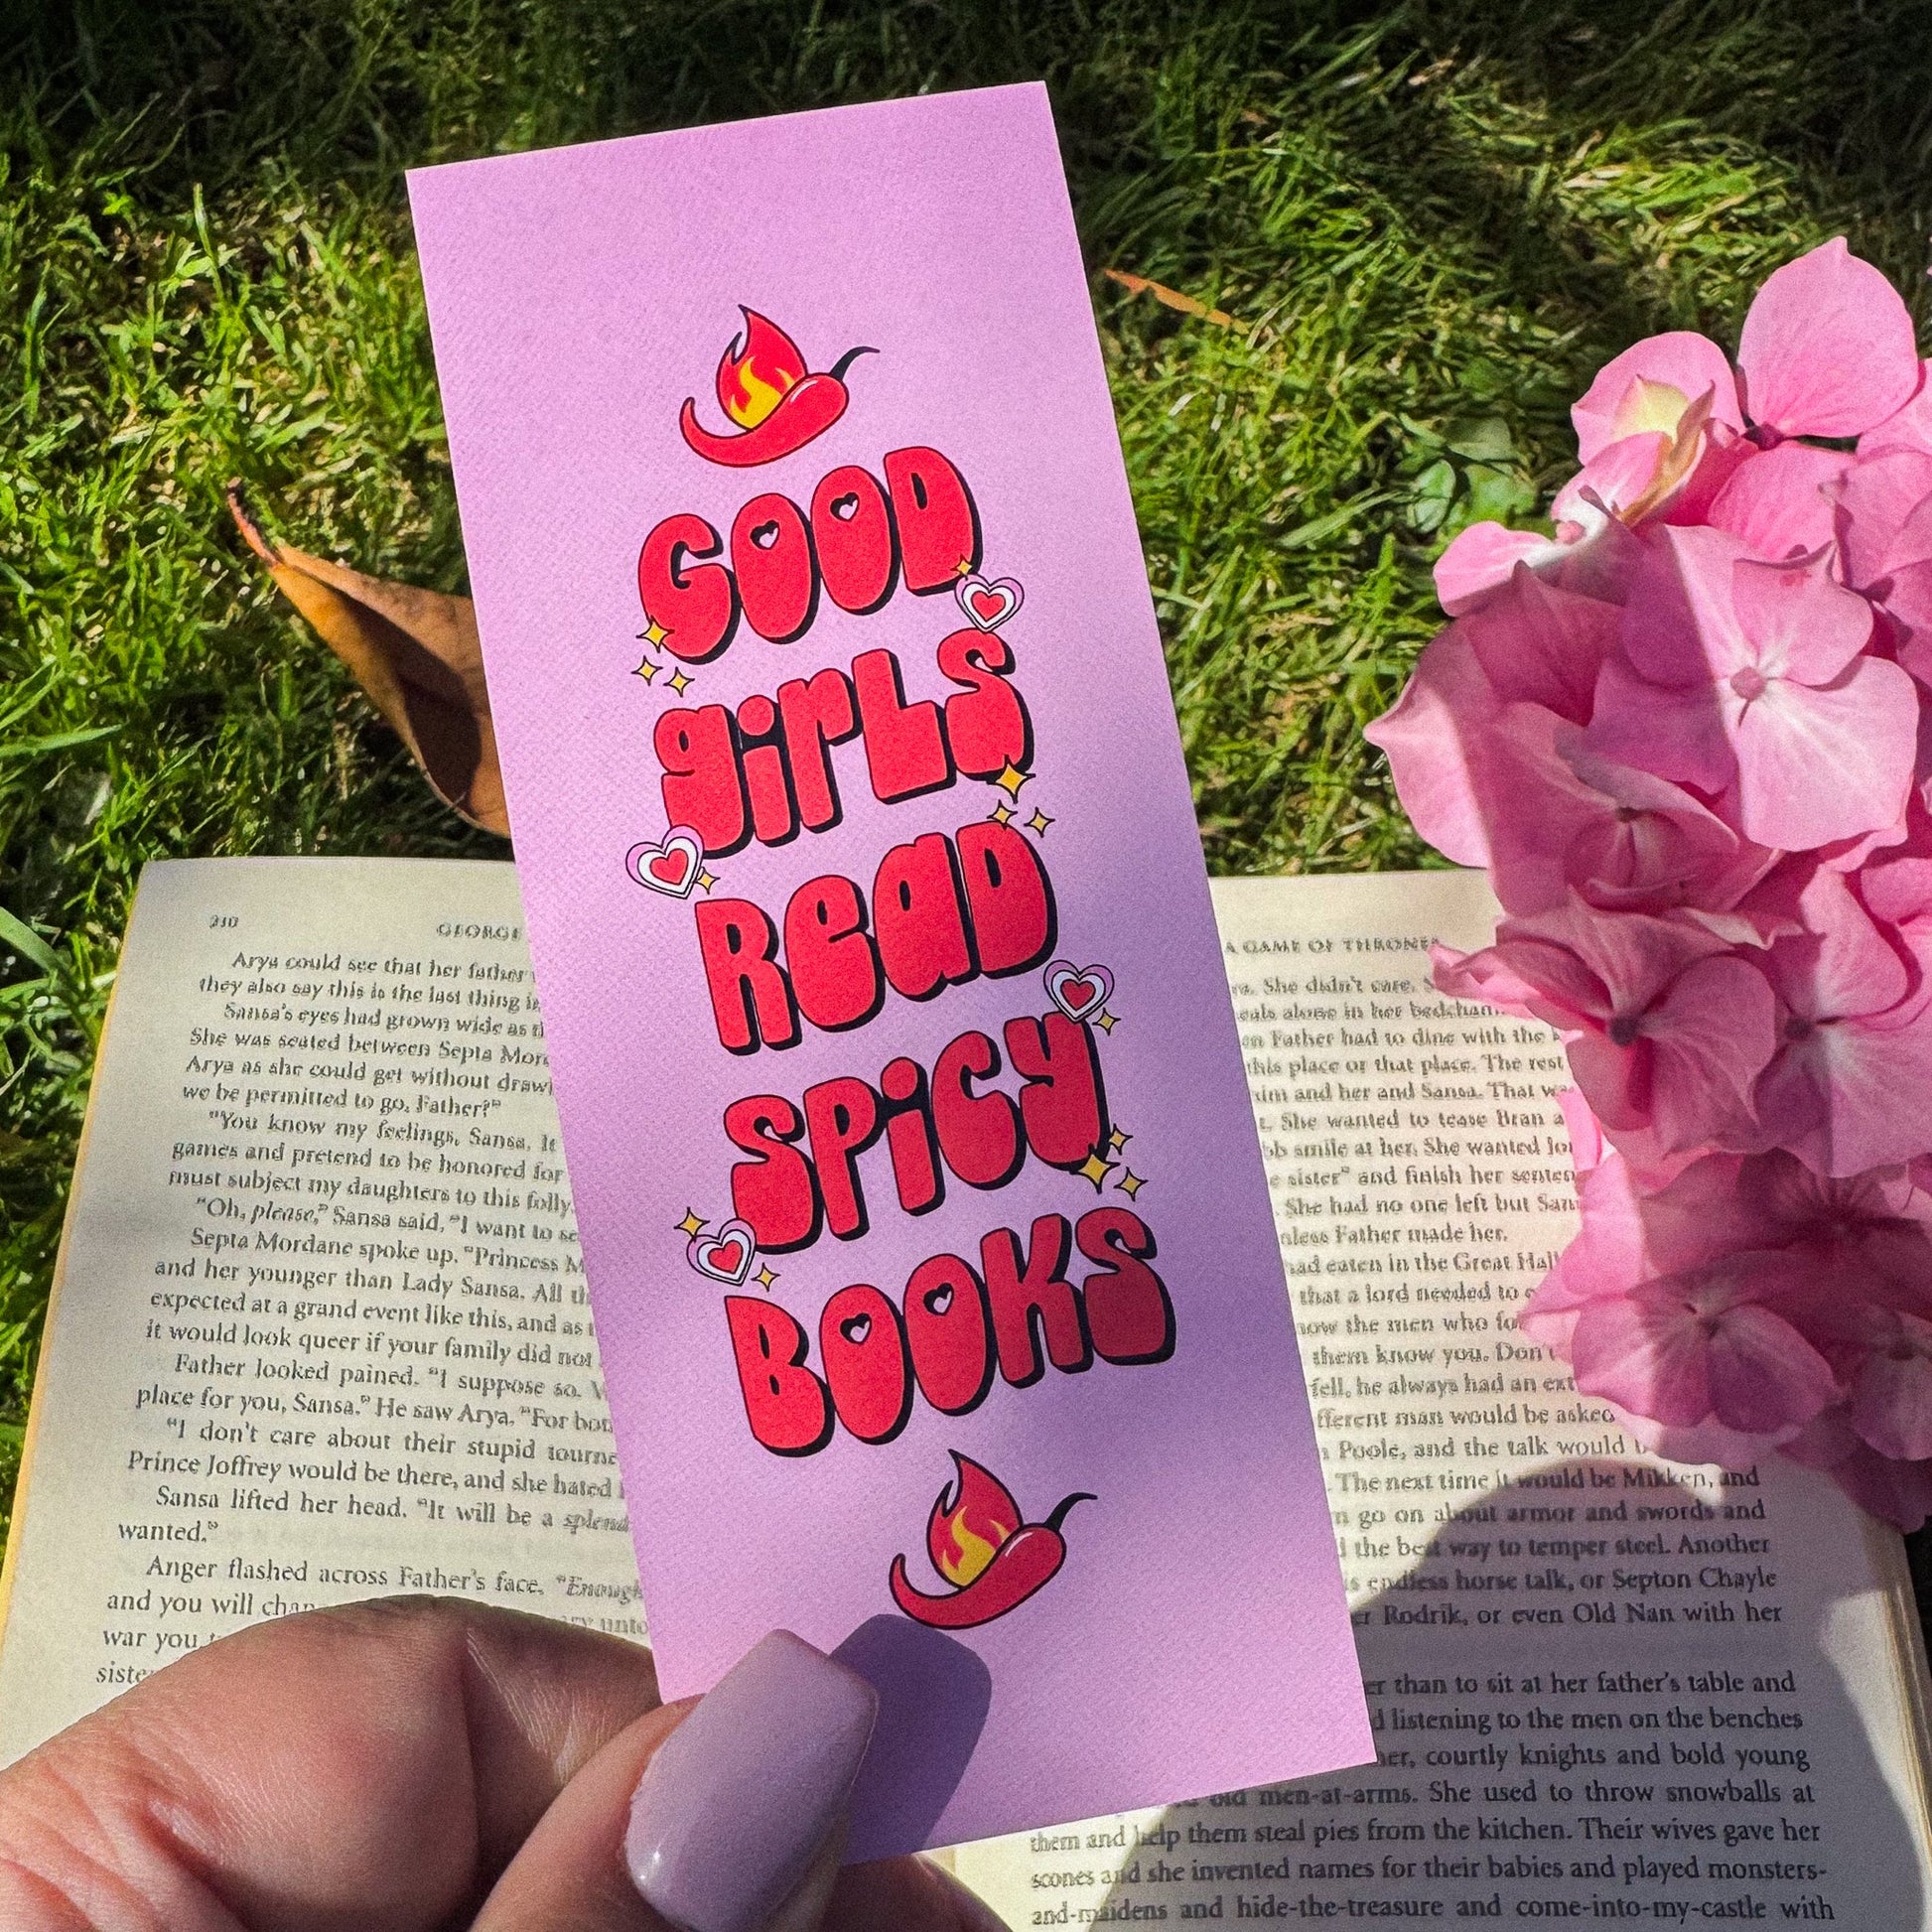 GOOD
girLS
Read
SPicy
BOOKS
210
GEORGE
Arya could see that her father
they also say this is the last thing
Sansa's eyes had grown wide as
She was seated between Septa
Arya as she could get without
we be permitted to go, Father?"
"You know my feelings, Sansa. It
games and pretend to be honored for
must subject my daughters to this folly.
"Oh, please," Sansa said. "I want to
Septa Mordane spoke up. "Princess
and her younger than Lady Sansa. All
expected at a grand event like this, and as
it would look queer if your family did not
Father looked pained. "I suppose so.
place for you, Sansa." He saw Arya. "For
"I don't care about their stupid
Prince Joffrey would be there, and she hated
Sansa lifted her head. "It will be a
wanted."
Anger flashed across Father's face. "Enough
and you will
war you
A GAME OF THRONES
She didn't care.
alone in her
Father had to dine with the
this place or that place. The rest
him and her and Sansa. That
She wanted to tease Bran
smile at her. She wanted
sister" and finish her
She had no one left but
Father made her.
eaten in the Great
that a lord needed to
the men who
them know you. Don't
he always had an
man would be asked
Poole, and the talk would
The next time it would be Mikken, and
go on about armor and swords and
the best way to temper steel. Another
endless horse talk, or Septon Chayle
Rodrik, or even Old Nan with her
than to sit at her father's table and
listening to the men on the benches
courtly knights and bold young
old men-at-arms. She used to throw snowballs at
them and help them steal pies from the kitchen. Their wives gave her
scones and she invented names for their babies and played monsters-
and-maidens and hide-the-treasure and come-into-my-castle with